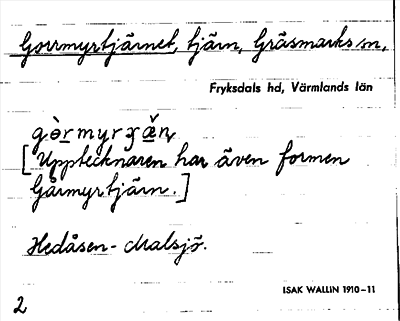 Gorrmyrtjärnet, tjärn, Gräsmarks sn,
Fryksdals hd, Värmlands län
[Upptecknaren har även formen
Gårmyrtjärn.]
Hedåsen - Malsjö.
ISAK WALLIN 1910–11
2